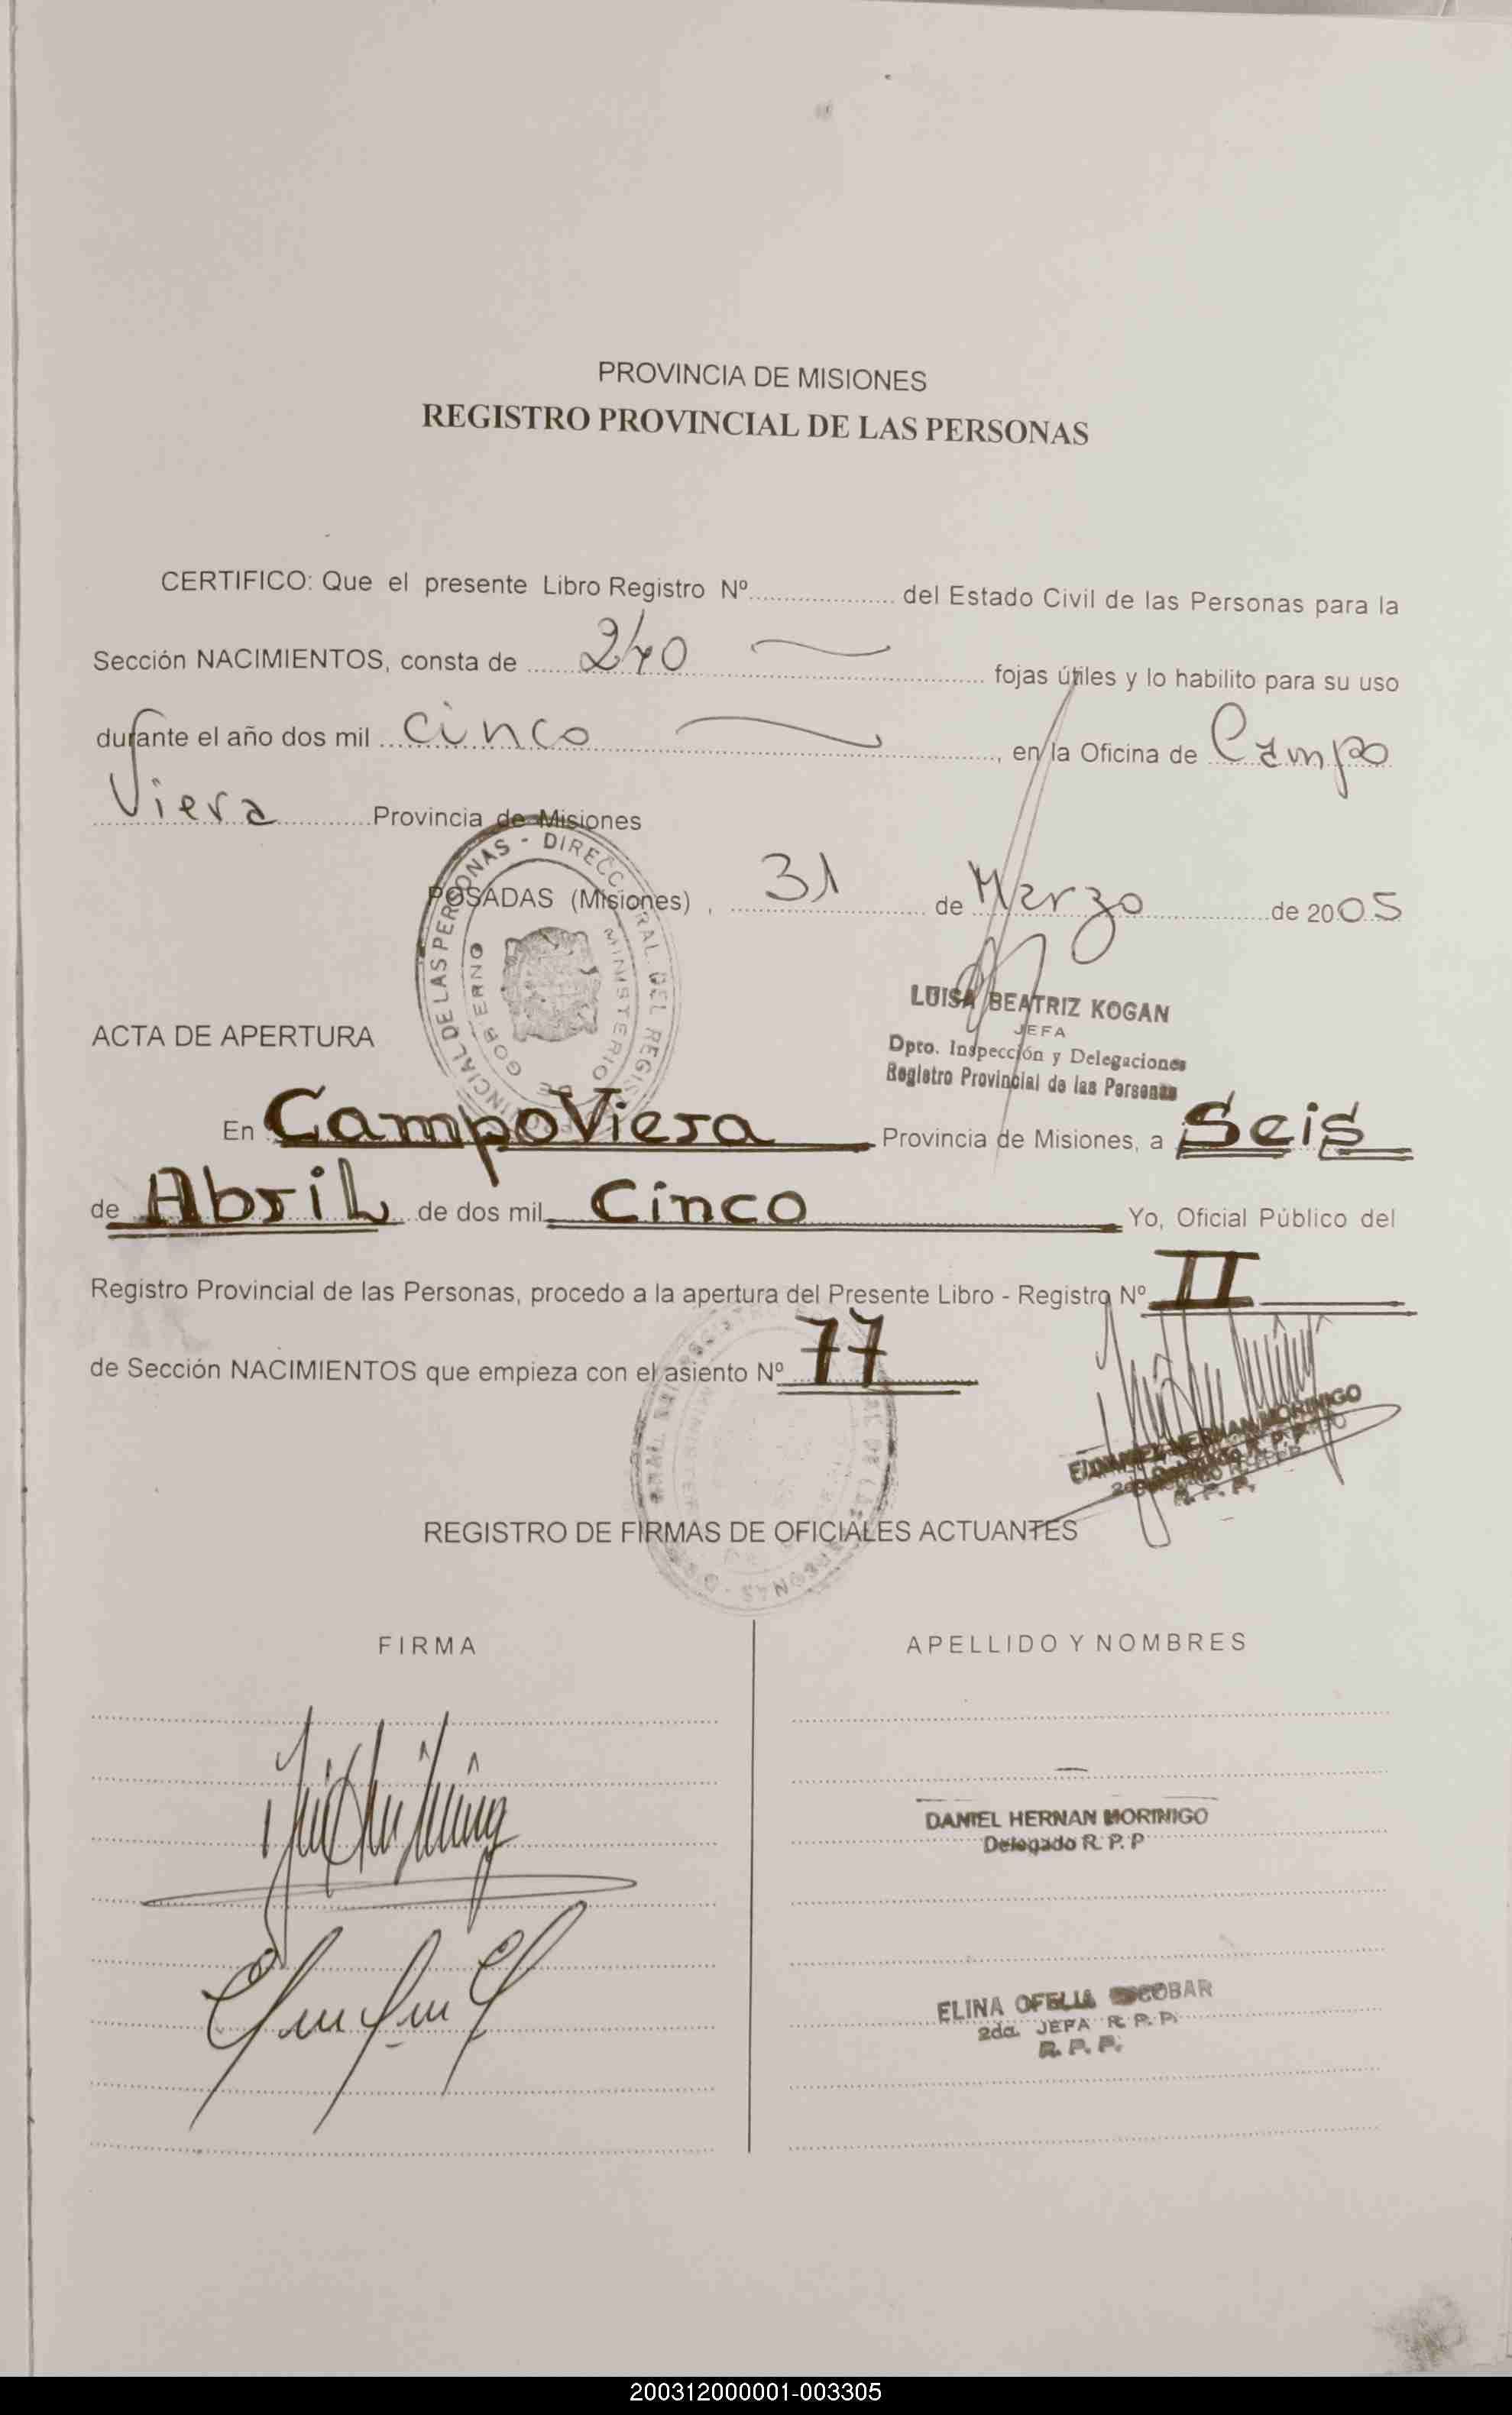 PROVINCIA DE MISIONES
REGISTRO PROVINCIAL DE LAS PERSONAS
CERTIFICO: Que el presente Libro Registro Nº.................... del Estado Civil de las Personas para la
Sección NACIMIENTOS, consta de 240 fojas útiles y lo habilito para su uso
durante el año dos mil cinco, en la Oficina de Campo
Viera Provincia de Misiones
POSADAS (Misiones), 31 de Marzo de 2005
LUISA BEATRIZ KOGAN
JEFA
Dpto. Inspección y Delegaciones
Registro Provincial de las Personas
ACTA DE APERTURA
En Campo Viera Provincia de Misiones, a Seis
de Abril de dos mil Cinco Yo, Oficial Público del
Registro Provincial de las Personas, procedo a la apertura del Presente Libro - Registro Nº II
de Sección NACIMIENTOS que empieza con el asiento Nº 77
HERNAN MORINIGO
REGISTRO DE FIRMAS DE OFICIALES ACTUANTES
FIRMA
APELLIDO Y NOMBRES
DANIEL HERNAN MORINIGO
Delegado R. P. P
ELINA OFELIA ESCOBAR
2da. JEFA R. P. P.
R. P. P.
200312000001-003305